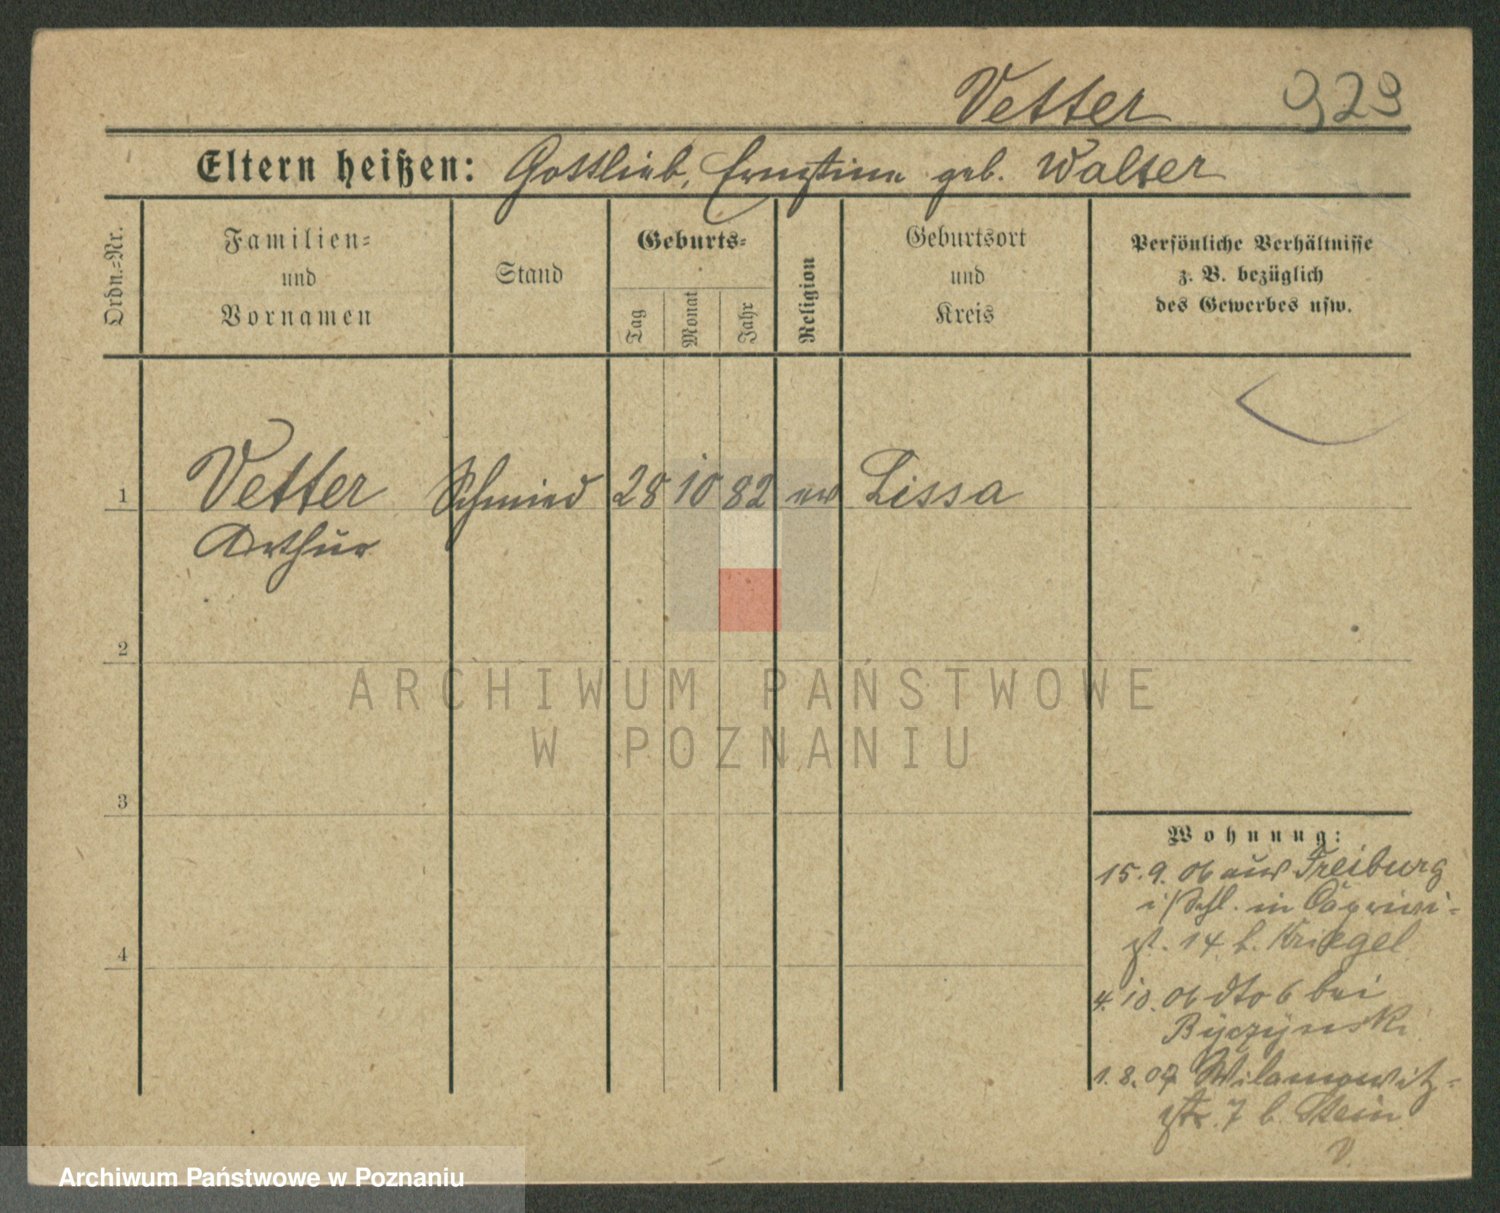 Vetter 929
Eltern heißen: Gottlieb, Ernstine geb. Walter
Ordn.-Nr.
Familien-
und
Vornamen
Stand
Geburts-
Tag
Monat
Jahr
Religion
Geburtsort
und
Kreis
Persönliche Verhältnisse
z. B. bezüglich
des Gewerbes usw.
1 Vetter Schmied 28 10 82 ev Lissa
Arthur
2
ARCHIWUM PAŃSTWOWE
W POZNANIU
3
Wohnung:
15. 9. 06 aus Freiburg
i/Schl. in Caprivi-
st. 14 b. Kriegel
4
4. 10. 06 dto 6 bei
Byczynski
1. 8. 07 Wilamowitz-
str. 7 b. Stein
Archiwum Państwowe w Poznaniu